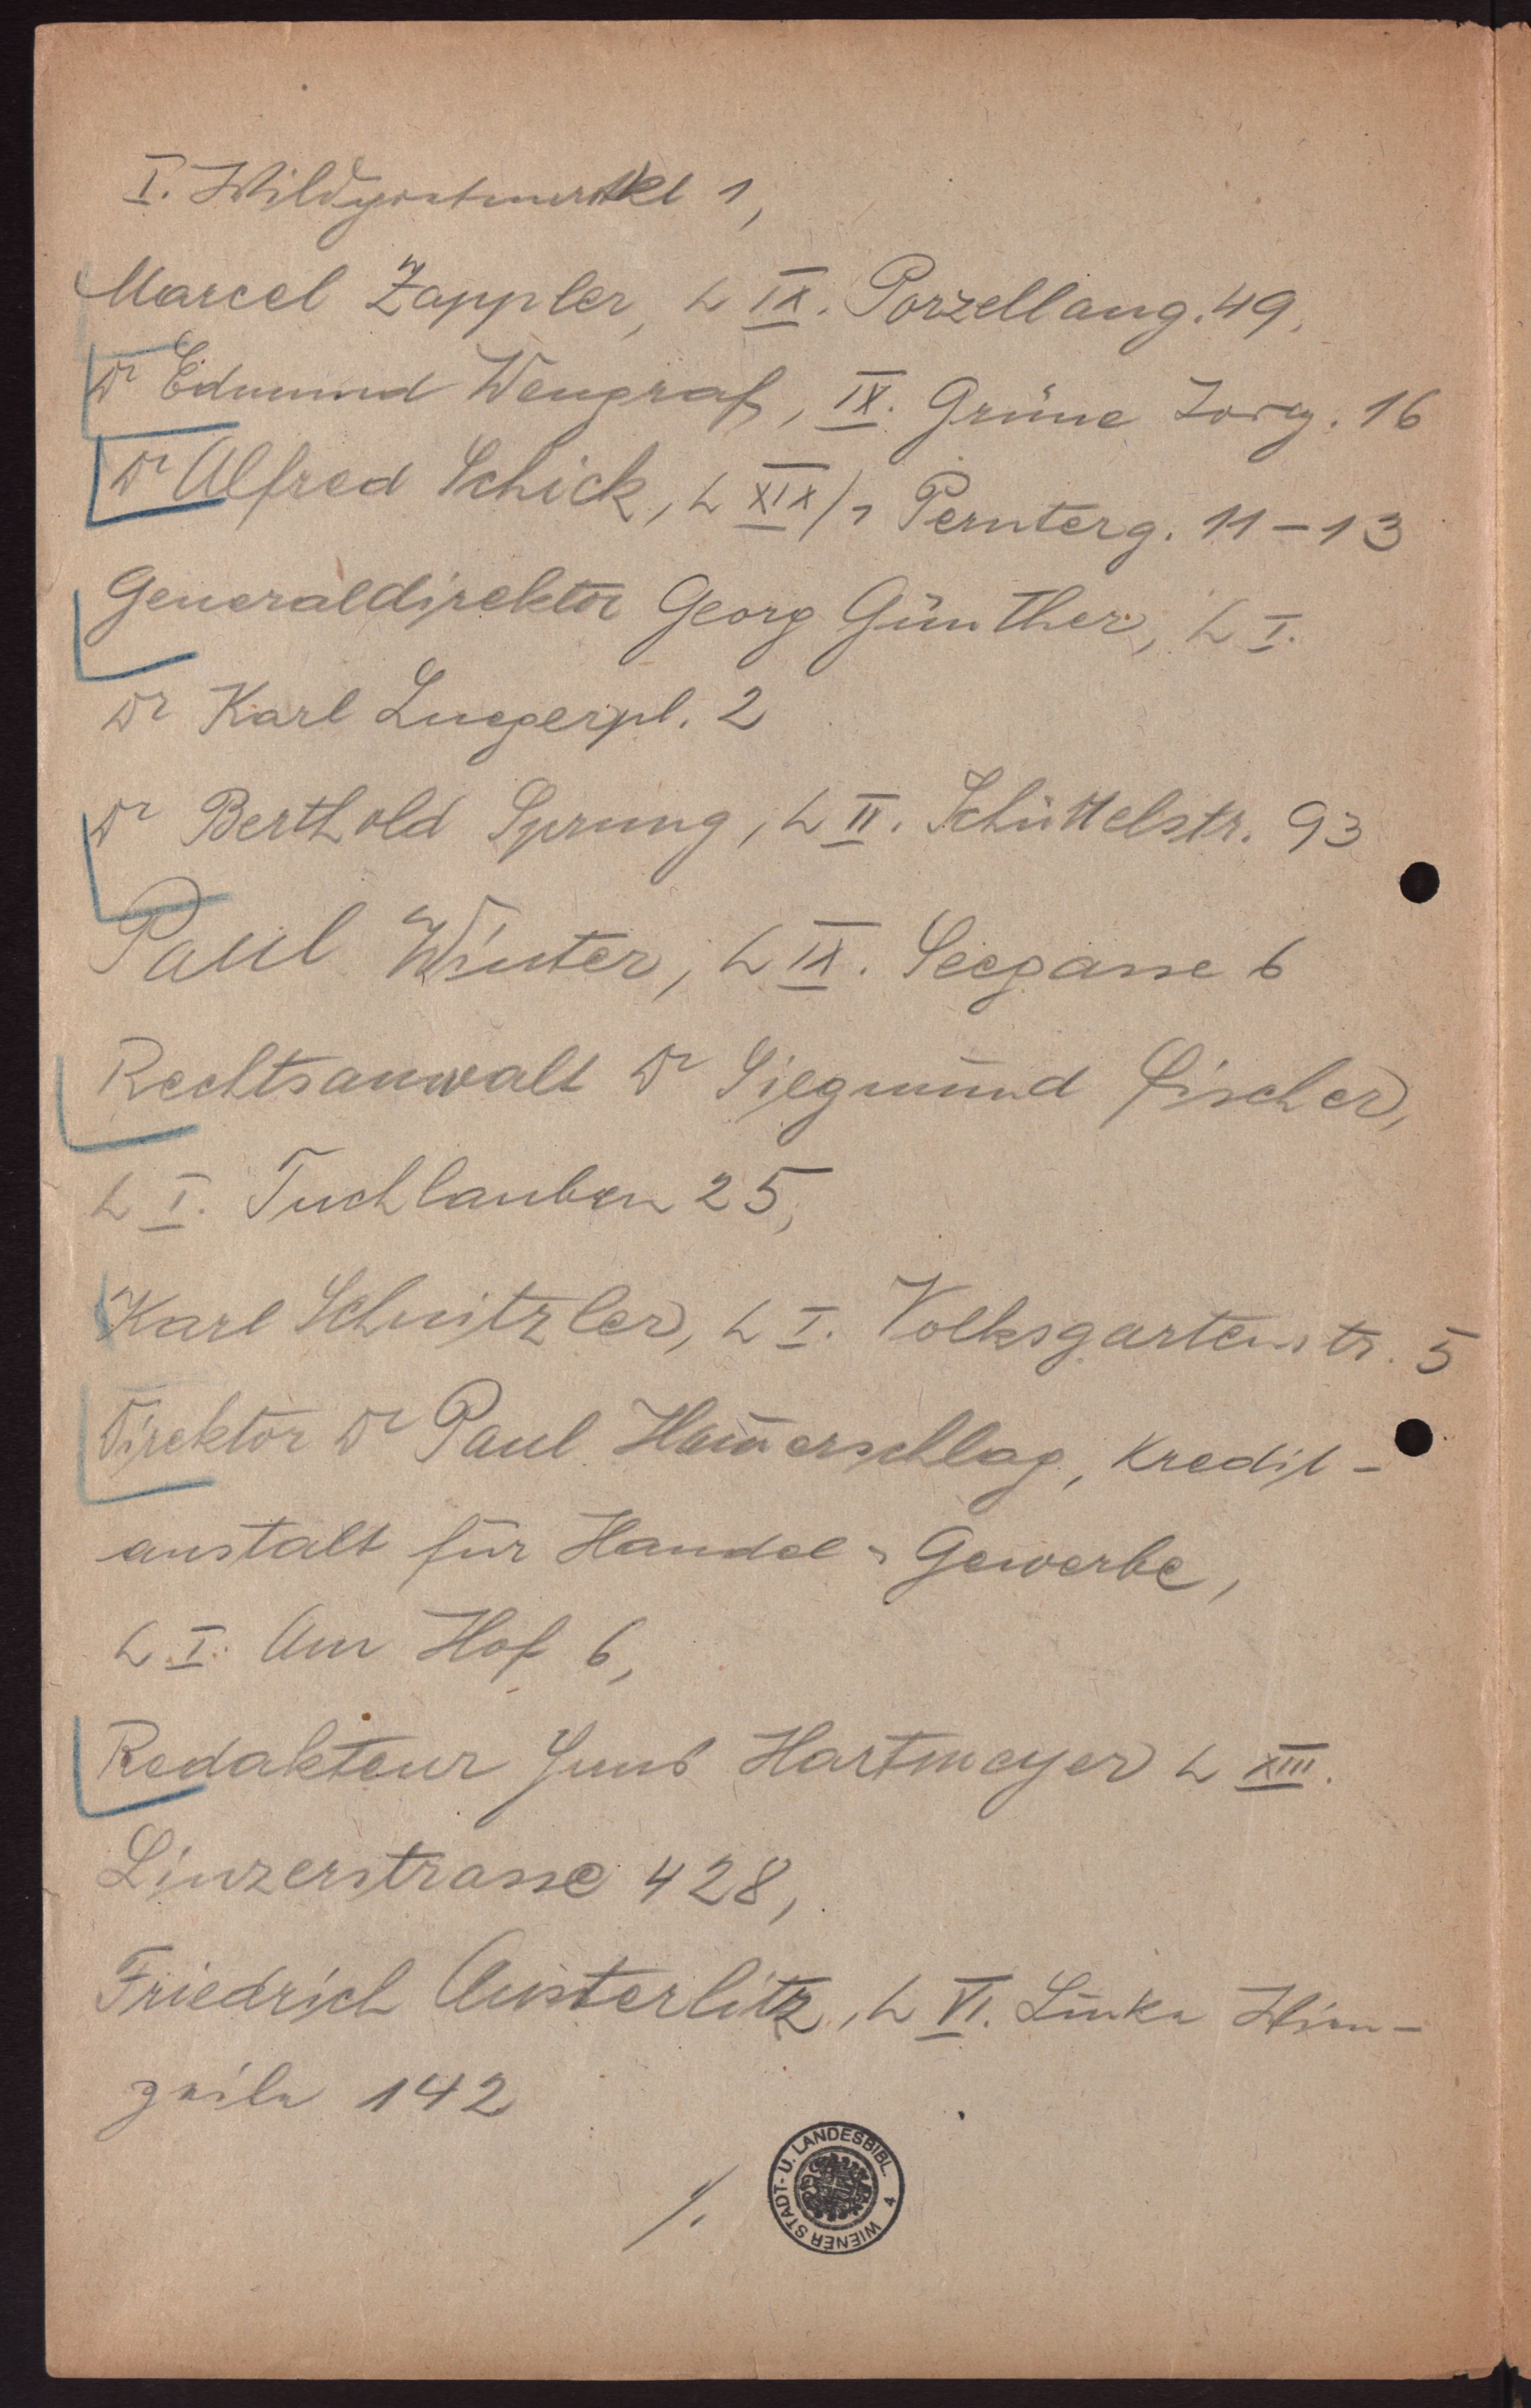 I. Wildpretmarkt 1,
Marcel Zappler, in IX. Porzellang. 49,
Dr Edmund Wengraf, IX. Grüne Torg. 16
Dr Alfred Schick, in XIX/1 Pernterg. 11-13
Generaldirektor Georg Günther, in I.
Dr Karl Luegerpl. 2
Dr Berthold Sprung, in II. Schüttelstr. 93
Paul Winter, in IX. Seegasse 6
Rechtsanwalt Dr Siegmund Fischer,
in I. Tuchlauben 25,
Karl Schnitzler, in I. Volksgartenstr. 5
Direktor Dr Paul Ham̄erschlag, Kredit-
anstalt für Handel u Gewerbe,
in I. Am Hof 6,
Redakteur Hartmeyer in XIII.
Linzerstrasse 428,
Friedrich Austerlitz, in VI. Linke Wien-
zeile 142
./.
WIENER STADT- U. LANDESBIBL. 4